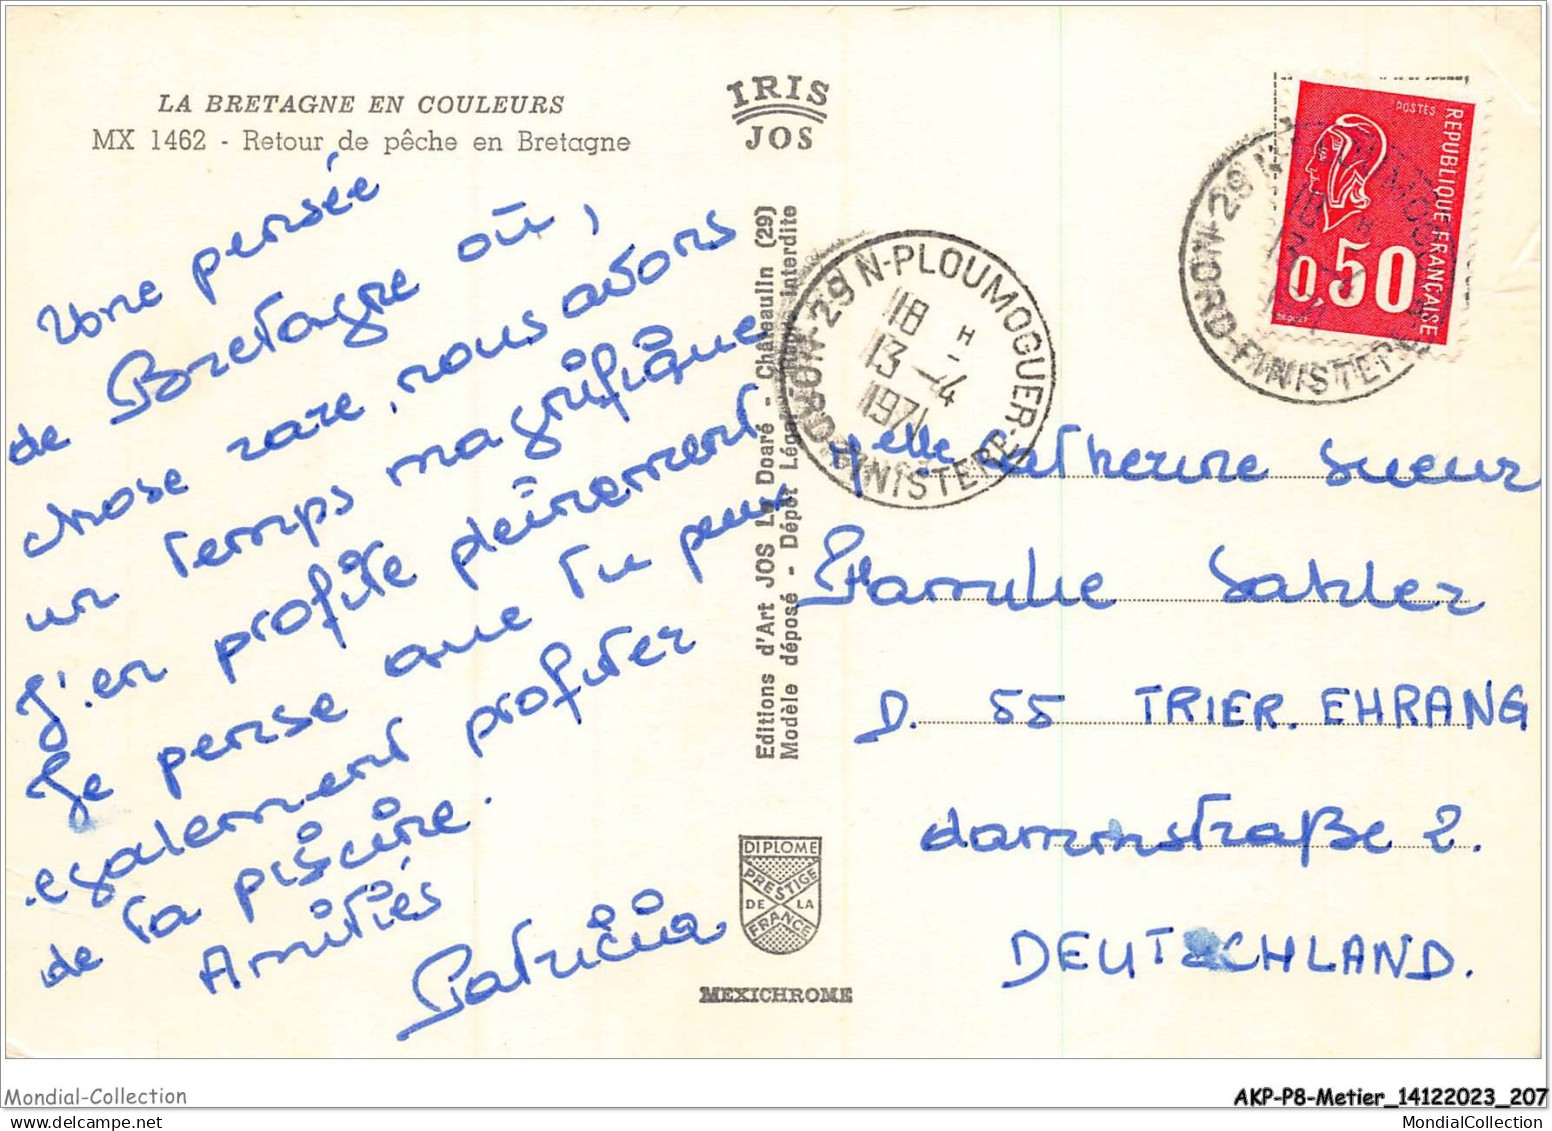 LA BRETAGNE EN COULEURS
MX 1462 - Retour de pêche en Bretagne
Une pensée
de Bretagne où,
chose rare, nous avons
un temps magnifique
J'en profite pleinement
Je pense que tu peux
egalement profiter
de la piscine.
Amitiés
Patricia
IRIS
JOS
Editions d'Art JOS Le Doaré - Châteaulin (29)
Modèle déposé - Dépôt Légal - Interdite
DIPLOME
PRESTIGE
DE LA
FRANCE
MEXICHROME
29 N-PLOUMOGUER-
18 H
13 -4
1971
FINISTERE
POSTES
REPUBLIQUE FRANÇAISE
0,50
29 N
FINISTERE
Melle Catherine Sueur
Famille
D. 55 TRIER. EHRANG
dammstraße 2.
DEUTSCHLAND.
Mondial-Collection
AKP-P8-Metier_14122023_207
MondialCollection